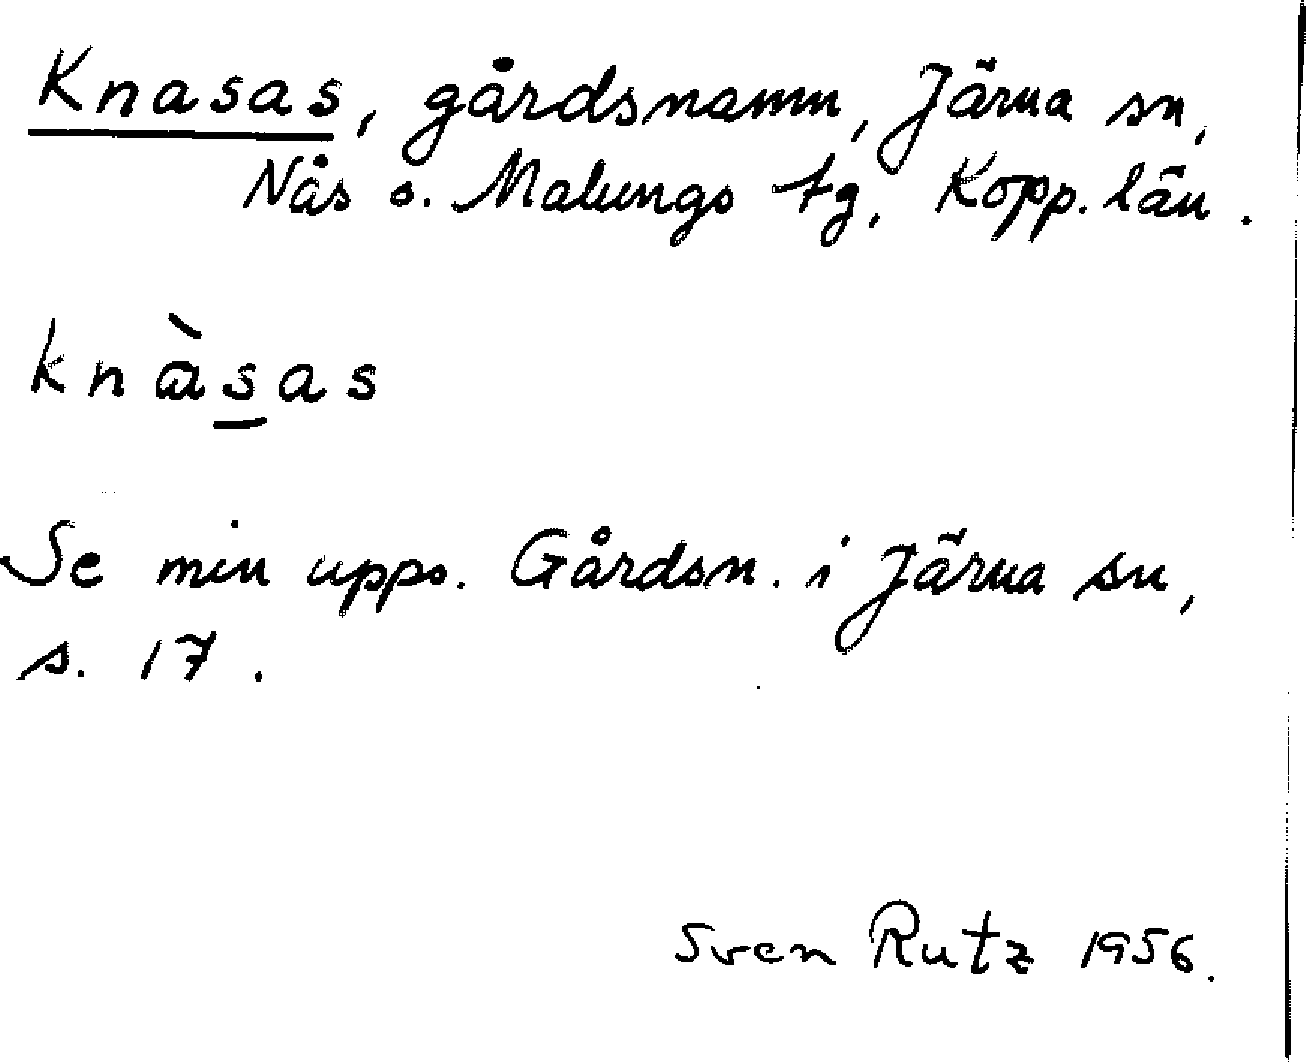 Knasas, gårdsnamn, Järna sn,
Nås o. Malungs tg, Kopp. län.
knàsas
Se min upps. Gårdsn. i Järna sn,
s. 17.
Sven Rutz 1956.